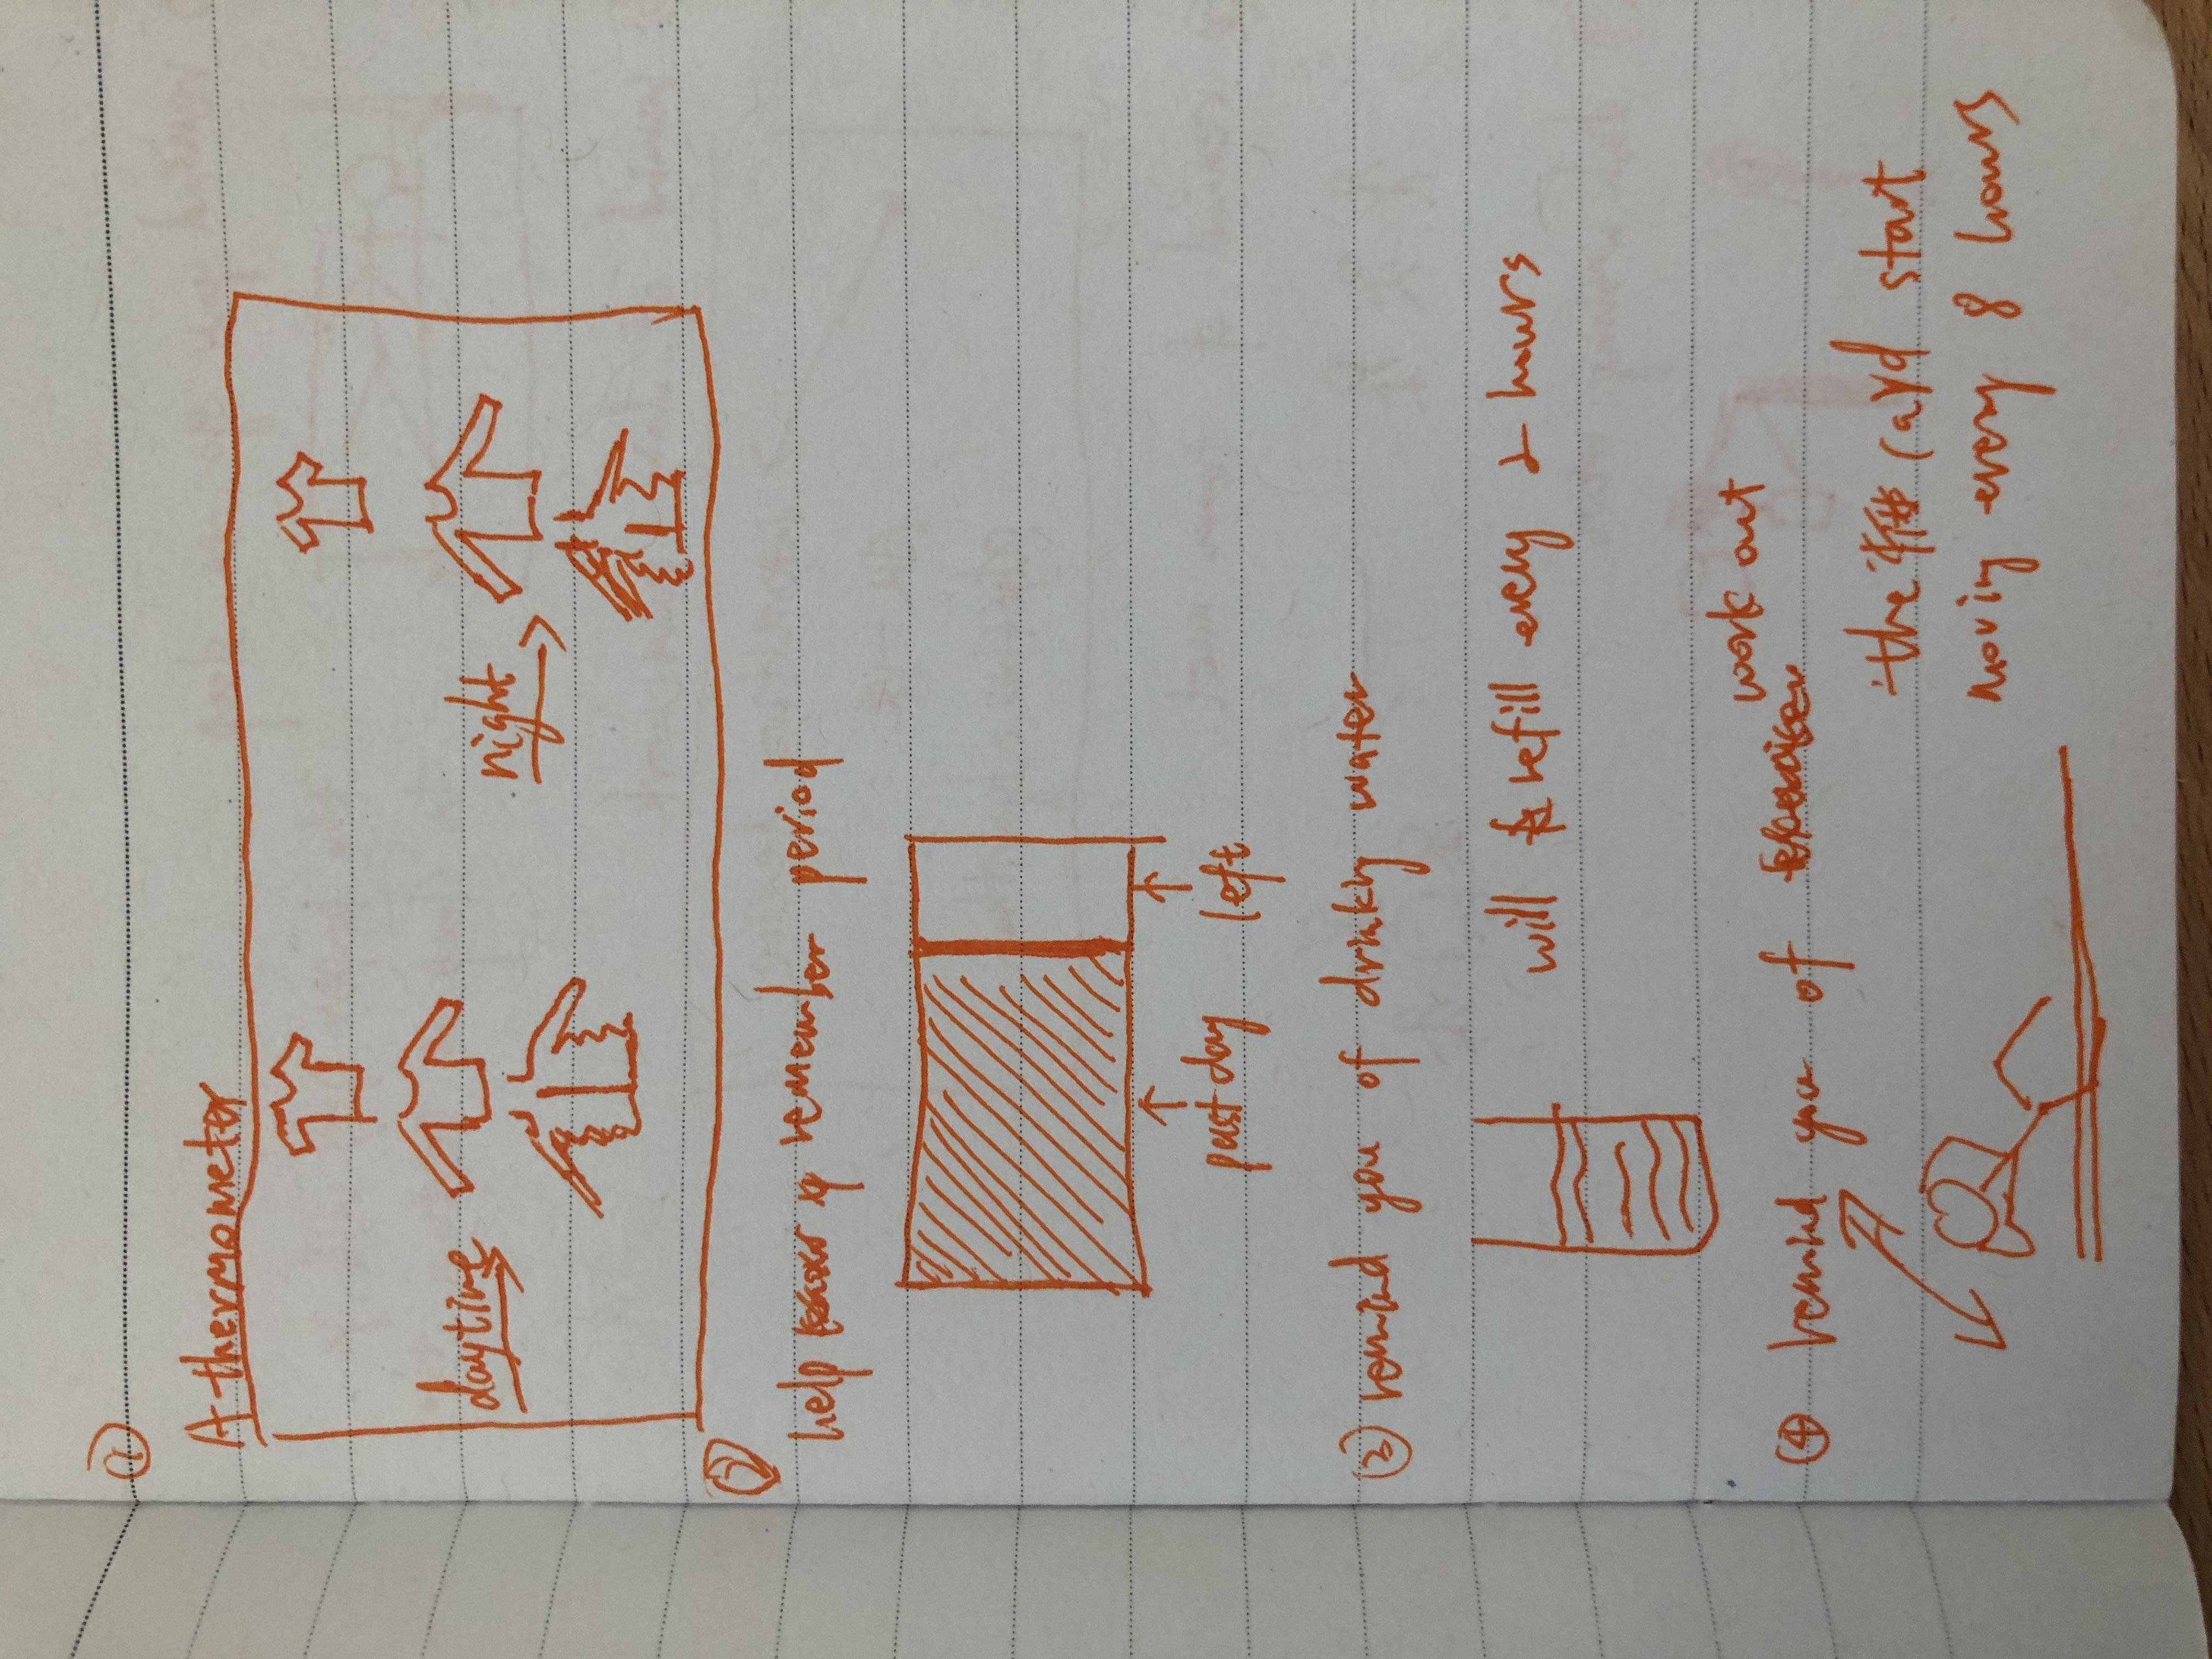 ①
A thermometer
daytime
night
②
help remember period
past day left
③ remind you of drinking water
will refill every 2 hours
work out
④ remind you of
the card start
moving every 8 hours